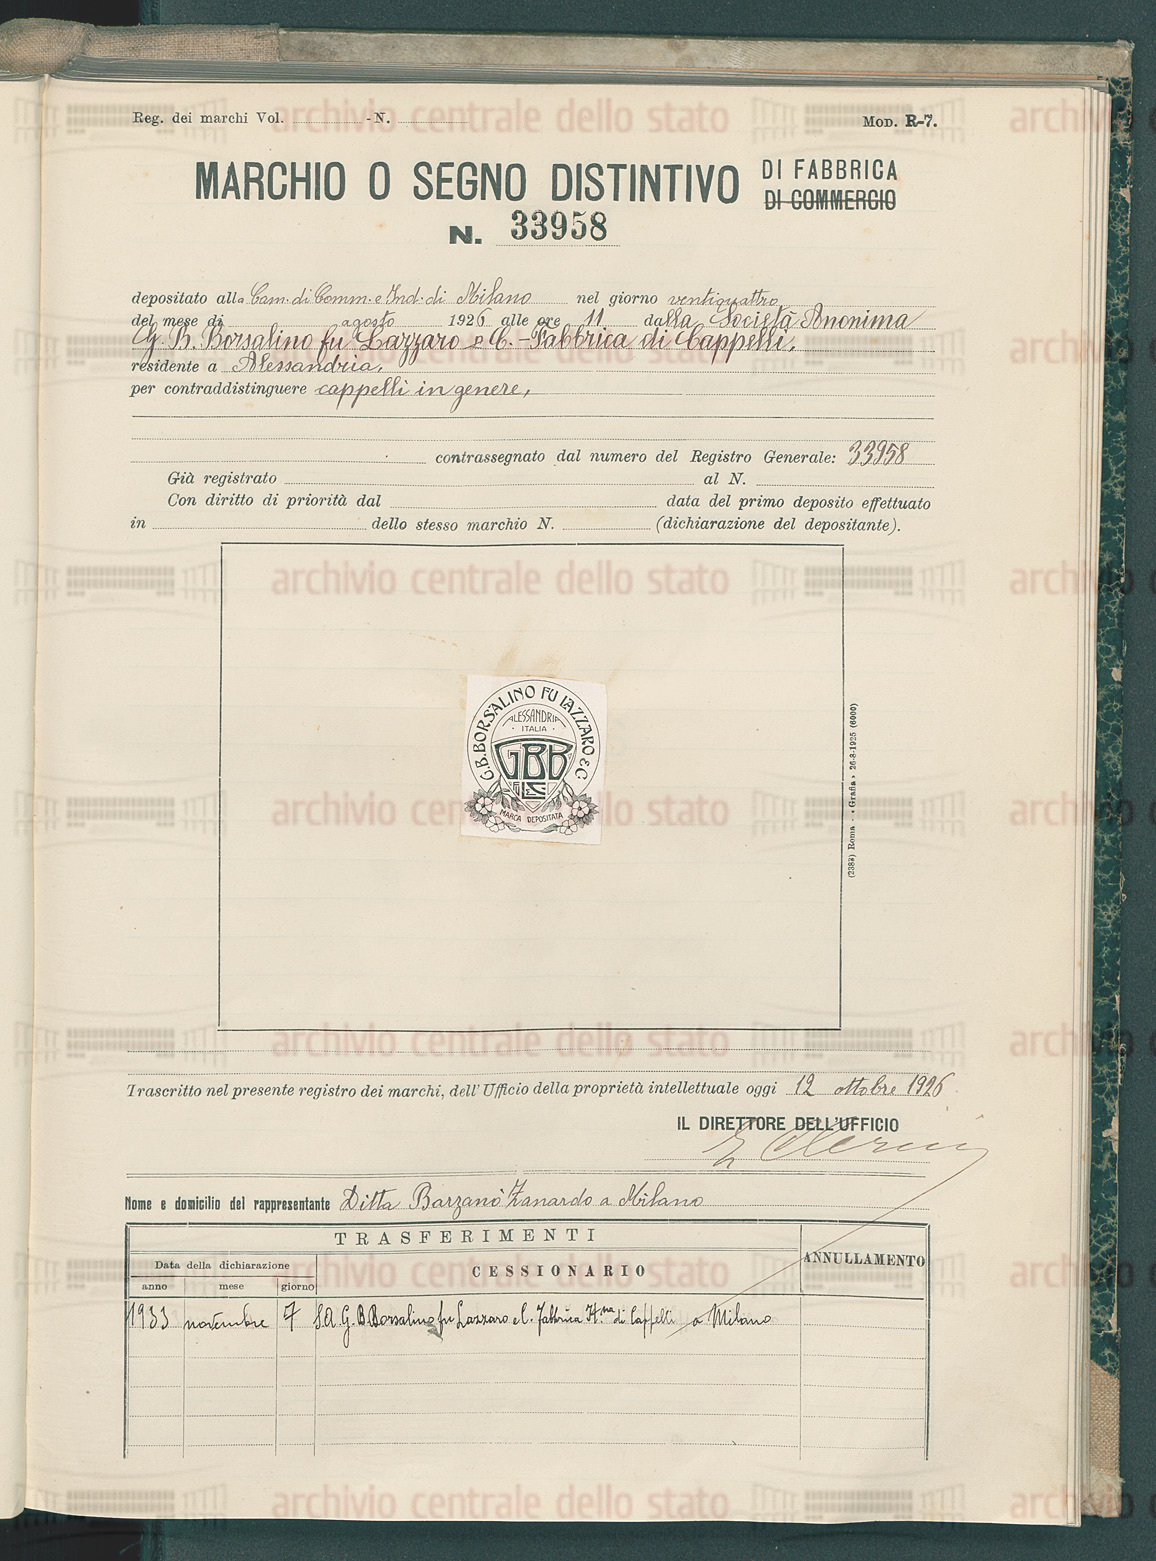 Reg. dei marchi Vol. - N.
MOD. R-7.
MARCHIO O SEGNO DISTINTIVO DI FABBRICA
DI COMMERCIO
N. 33958
depositato alla Cam. di Comm. e Ind. di Milano nel giorno ventiquattro
del mese di agosto 1926 alle ore 11 dalla Società Anonima
G. B. Borsalino fu Lazzaro e C. - Fabbrica di Cappelli,
residente a Alessandria,
per contraddistinguere cappelli in genere,
contrassegnato dal numero del Registro Generale: 33958
Già registrato al N.
Con diritto di priorità dal data del primo deposito effettuato
in dello stesso marchio N. (dichiarazione del depositante).
G.B. BORSALINO FU LAZZARO & C
ALESSANDRIA
· ITALIA ·
GBB
MARCA DEPOSITATA
(2382) Roma - « Grafia » 26-8-1925 (6000)
Trascritto nel presente registro dei marchi, dell'Ufficio della proprietà intellettuale oggi 12 ottobre 1926
IL DIRETTORE DELL'UFFICIO
Nome e domicilio del rappresentante Ditta Barzanò Zanardo a Milano
TRASFERIMENTI
ANNULLAMENTO
Data della dichiarazione
CESSIONARIO
anno mese giorno
1933 novembre 7 S.A. G.B. Borsalino fu Lazzaro e C. Fabbrica It.na di Cappelli a Milano
archivio centrale dello stato
archivio centrale dello stato
archivio centrale dello stato
archivio centrale dello stato
archivio centrale dello stato
archivio centrale dello stato
archivio centrale dello stato